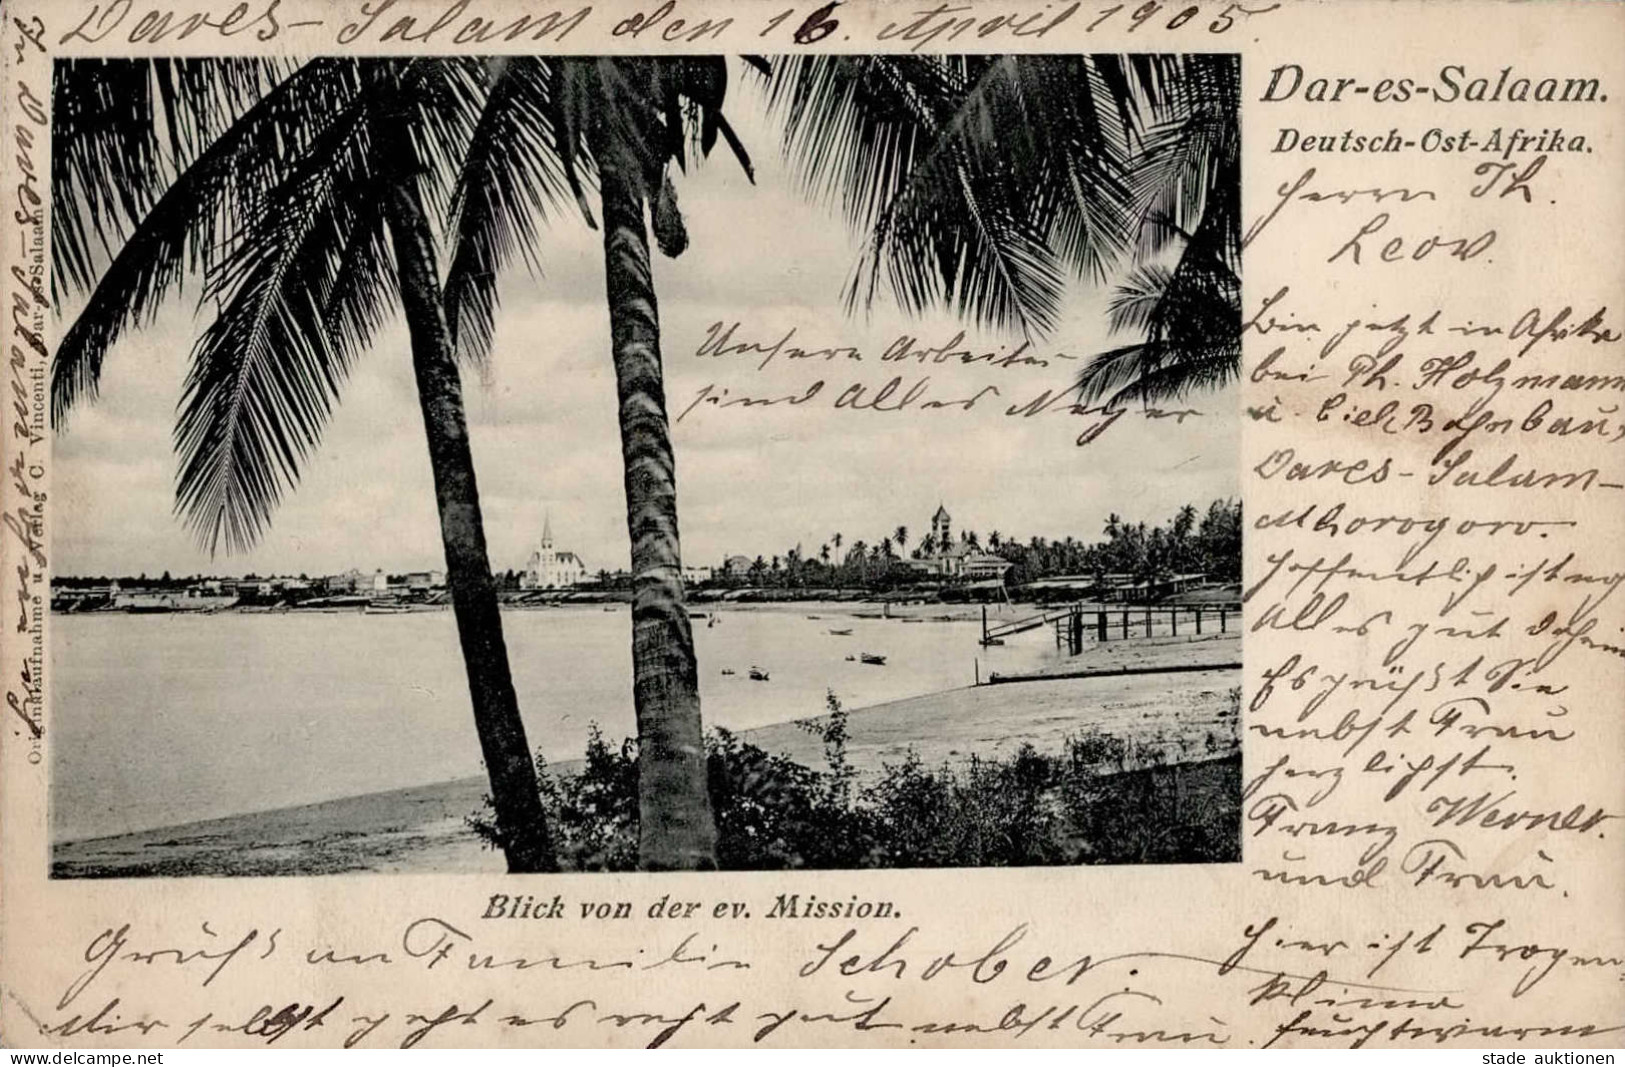 Dares-Salam den 16. April 1905.
Dar-es-Salaam.
Deutsch-Ost-Afrika.
Herrn Th.
Leow.
Bin jetzt in Afrika
bei Ph. Holzmann
u. Bahnbau,
Dares-Salam-
Mhorogoro.
Hoffentlich ist noch
Alles gut daheim
Es grüßt Sie
nebst Frau
herzlichst.
Franz Werner.
und Frau.
Hier ist Tropen-
klima
feuchtwarm
in Dares-Salam
Unsere Arbeiter
sind Alles Neger
Originalaufnahme u. Verlag C. Vincenti, Dar-es-Salaam
Blick von der ev. Mission.
Gruß an Familie Schober.
Mir selbst geht es recht gut nebst Frau.
stade auktionen